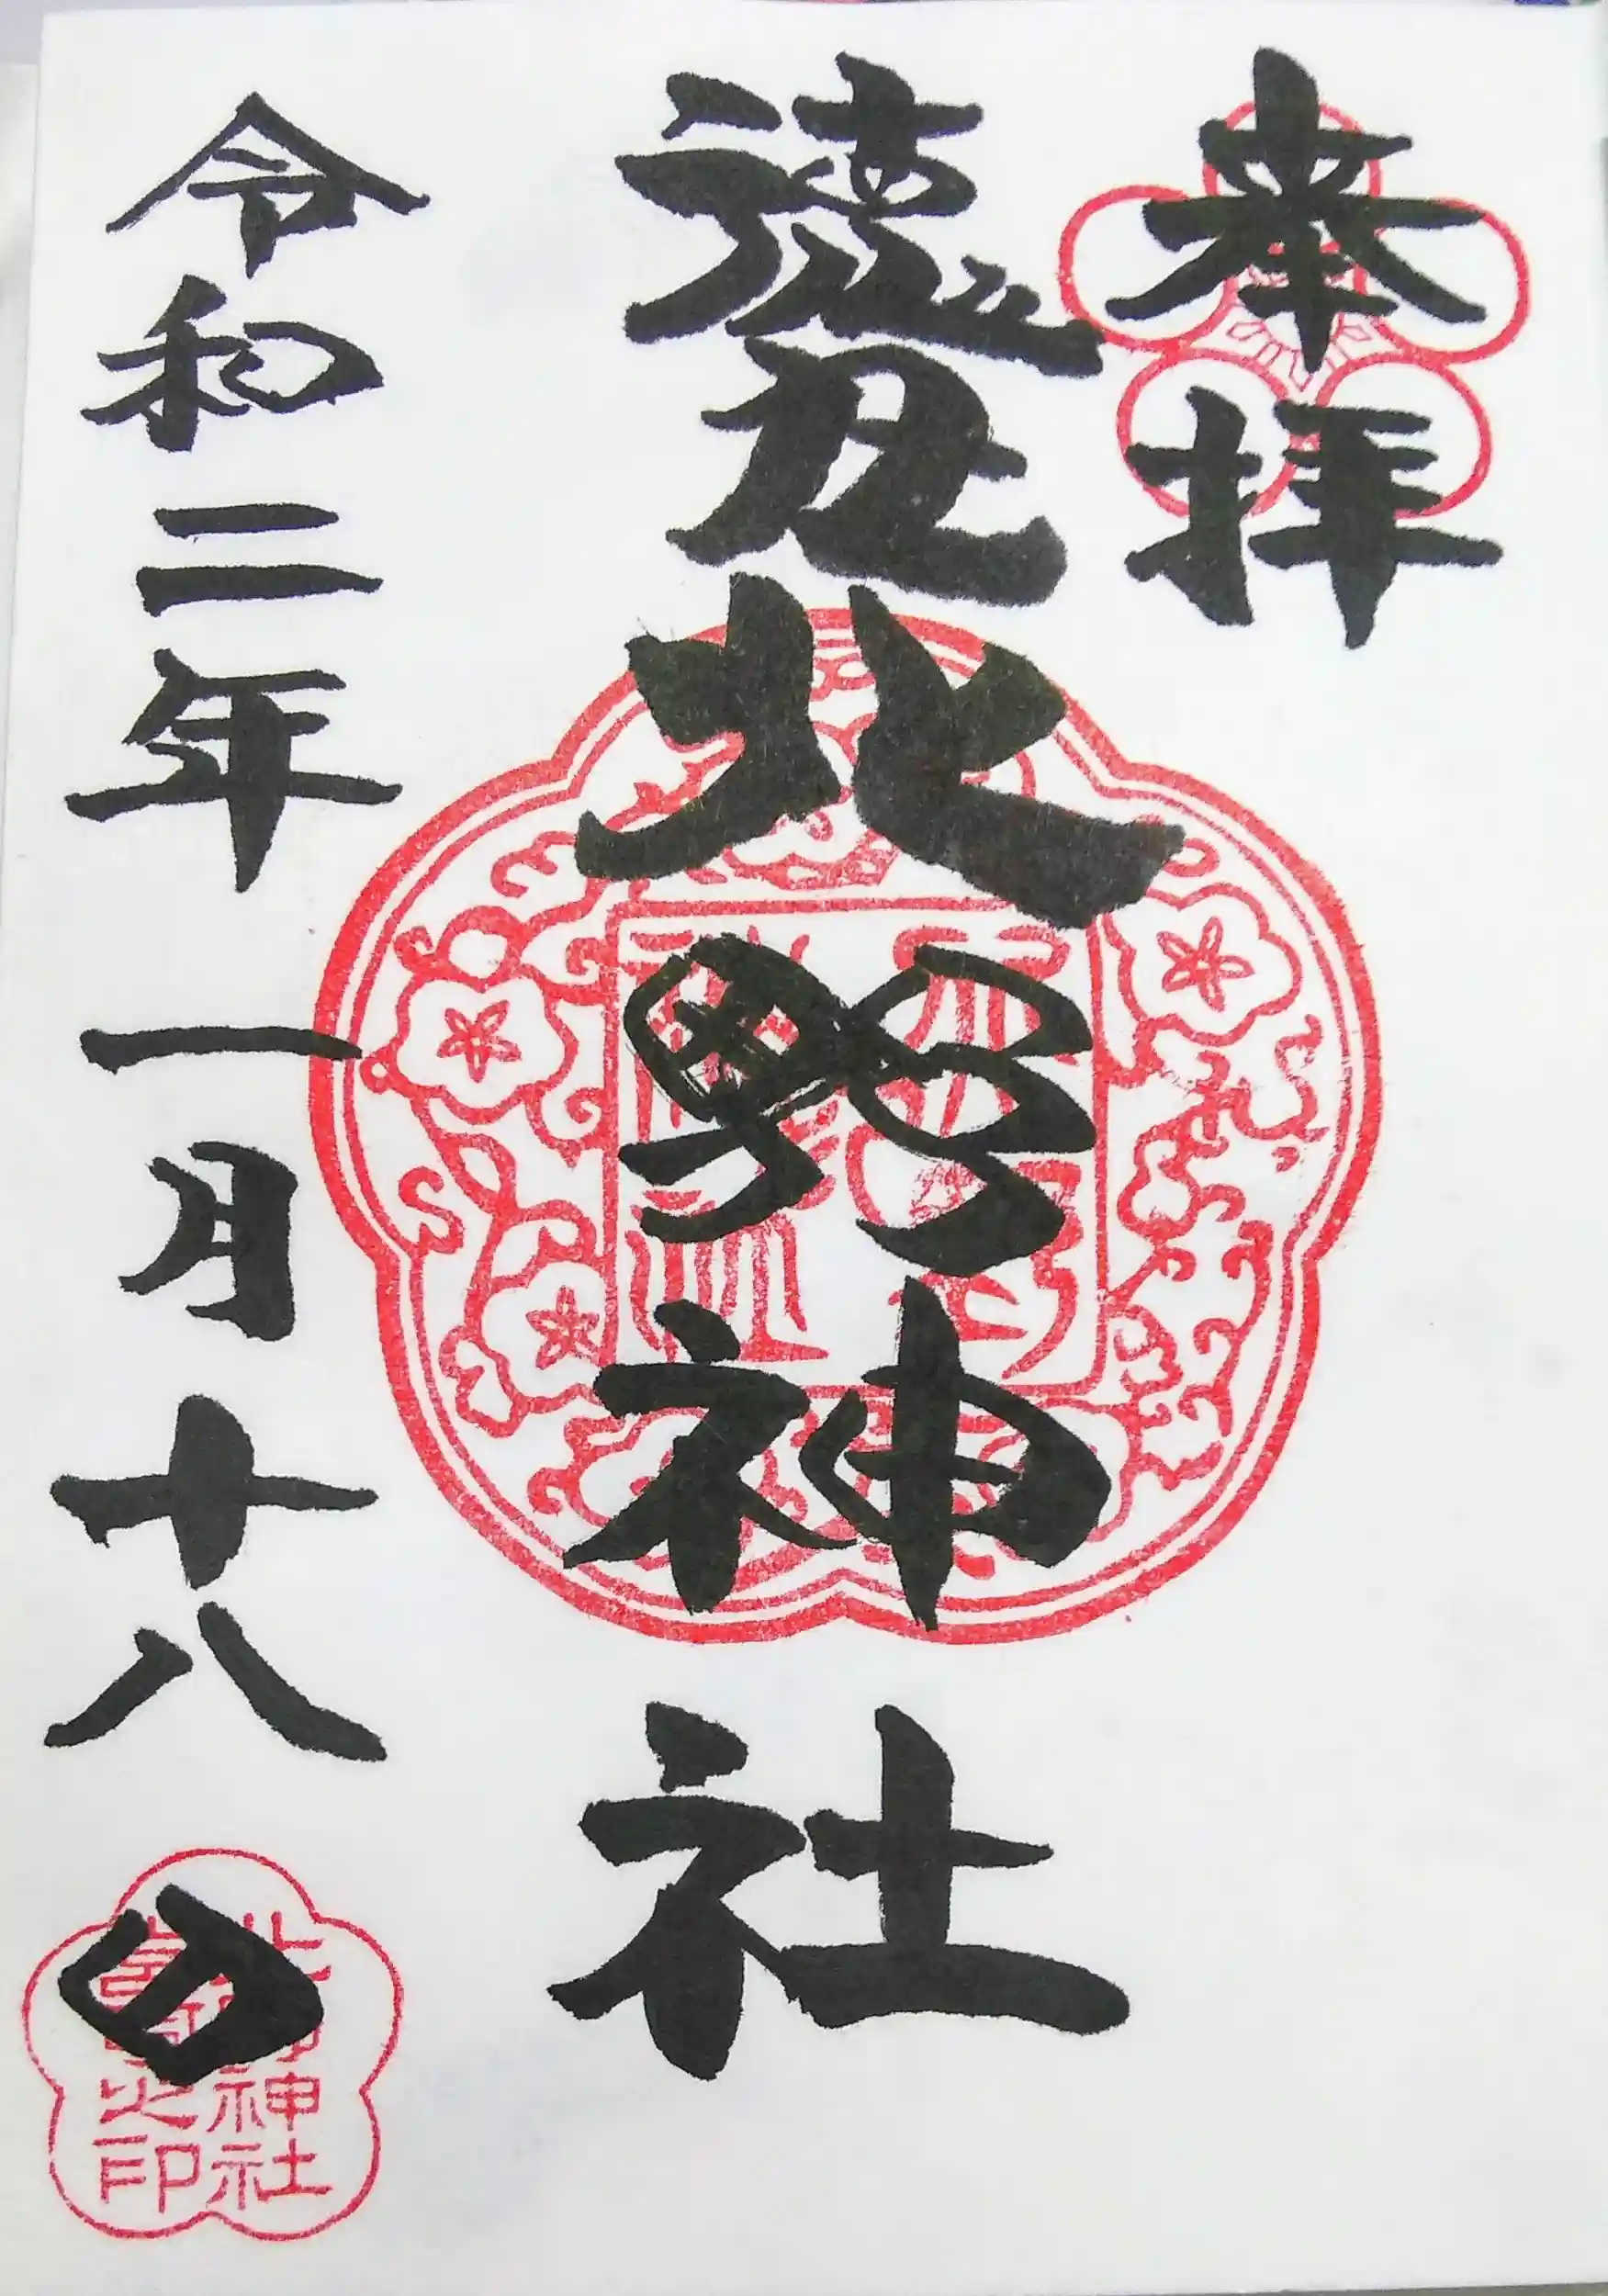 奉拝
徳丸北野神社
令和二年一月十八日
北野神社
之印